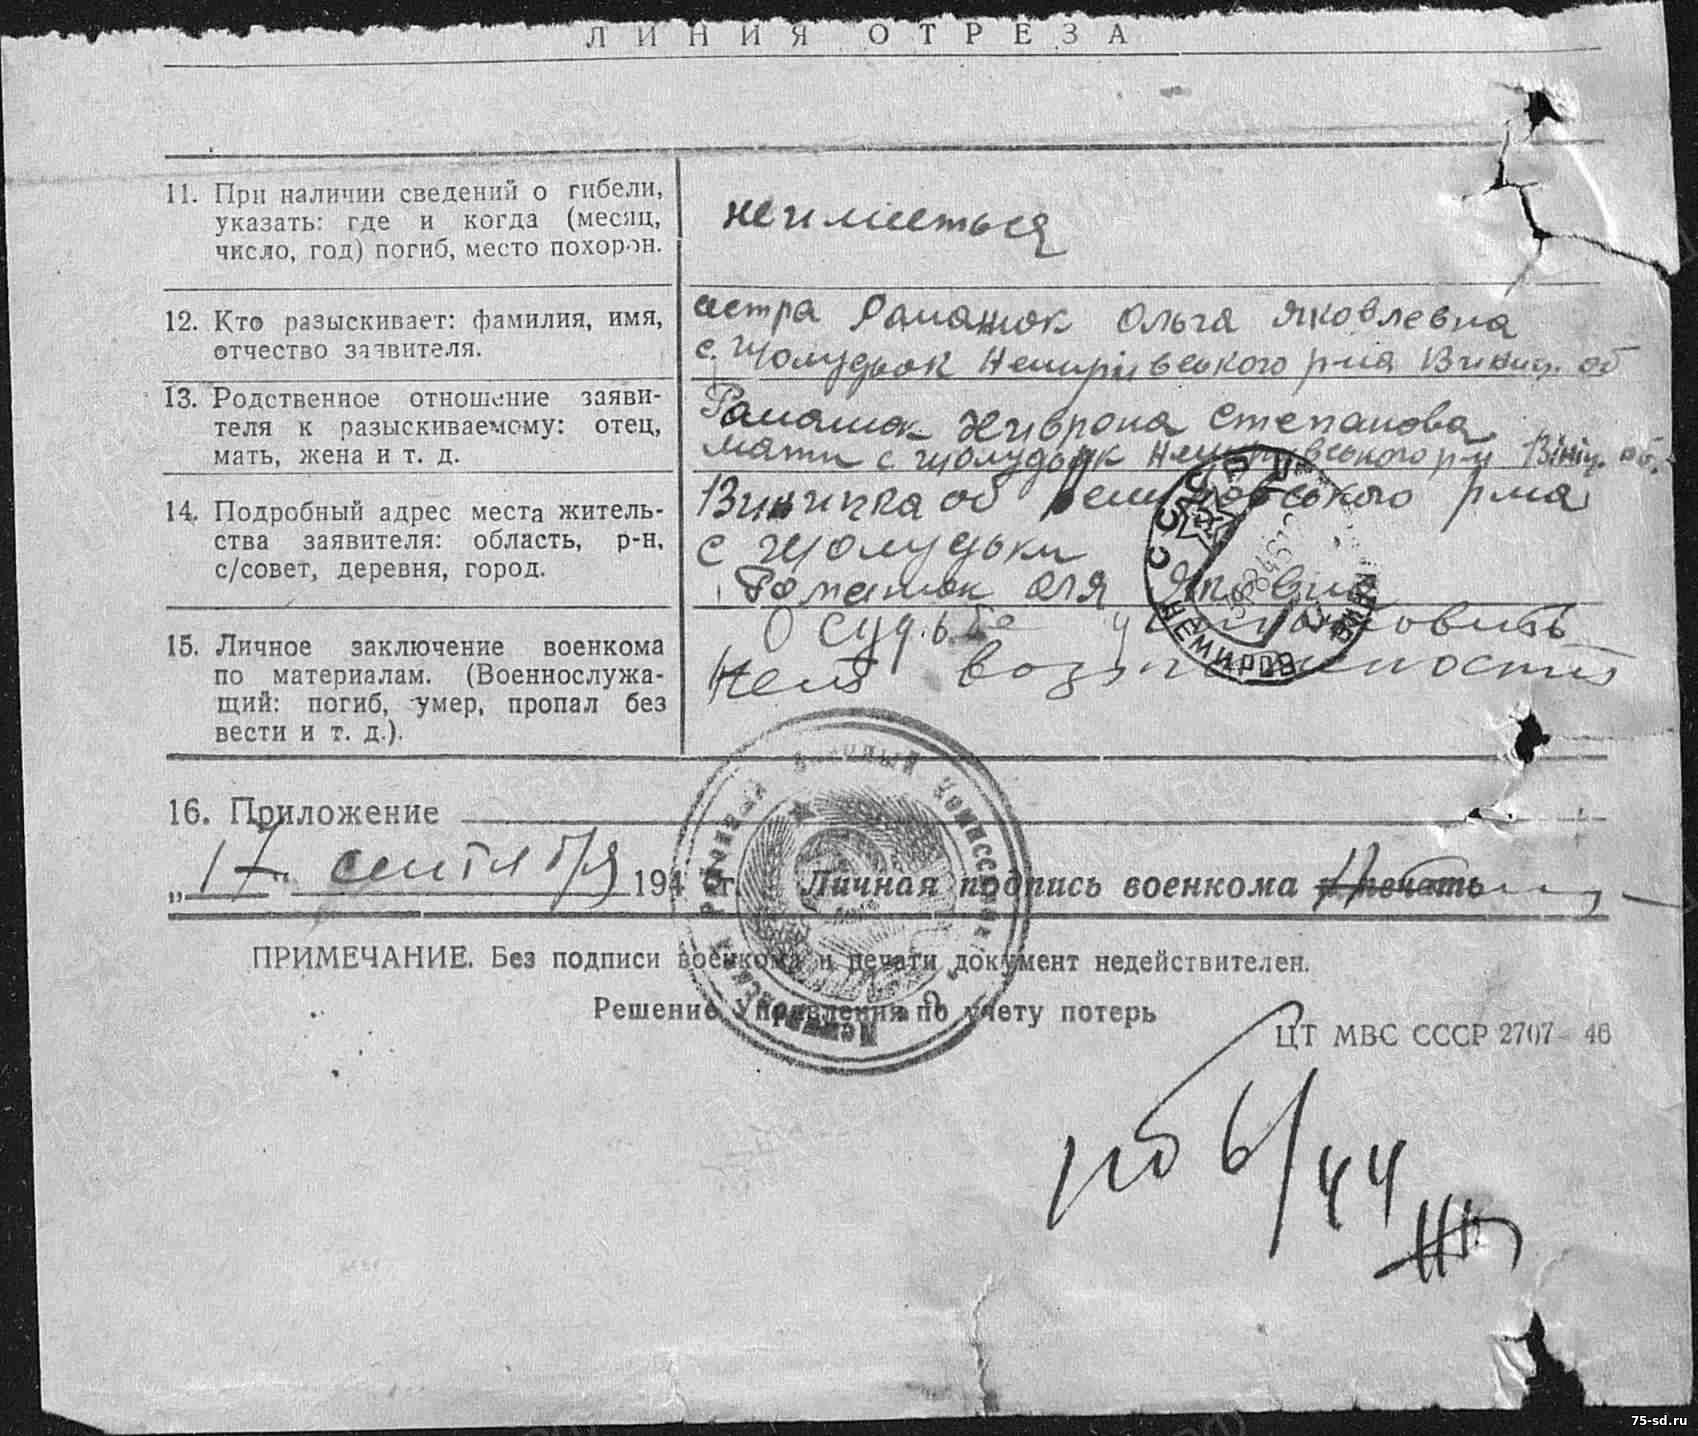 ЛИНИЯ ОТРЕЗА
11. При наличии сведений о гибели,
указать: где и когда (месяц,
число, год) погиб, место похорон.
неимиеться
12. Кто разыскивает: фамилия, имя,
отчество заявителя.
сестра Раманюк Ольга Яковлевна
с. Щолудьок Немирівського р-на Винниц. об
13. Родственное отношение заяви-
теля к разыскиваемому: отец,
мать, жена и т. д.
Раманюк Степанова
мати с Щолудьок Немирівського р-н Вініц. об.
14. Подробный адрес места житель-
ства заявителя: область, р-н,
с/совет, деревня, город.
об Немировського р-на
с Щолудьки
Романюк Оля
15. Личное заключение военкома
по материалам. (Военнослужа-
щий: погиб, умер, пропал без
вести и т. д.).
О судьбе установить
нет возможности
СССР
НЕМИРОВ
16. Приложение
„17" сентября 194 г. Личная подпись военкома и печать
ПРИМЕЧАНИЕ. Без подписи военкома и печати документ недействителен.
Решение Управления по учету потерь
ЦТ МВС СССР 2707—46
Военный Комиссариат
Районный
6/44
75-sd.ru